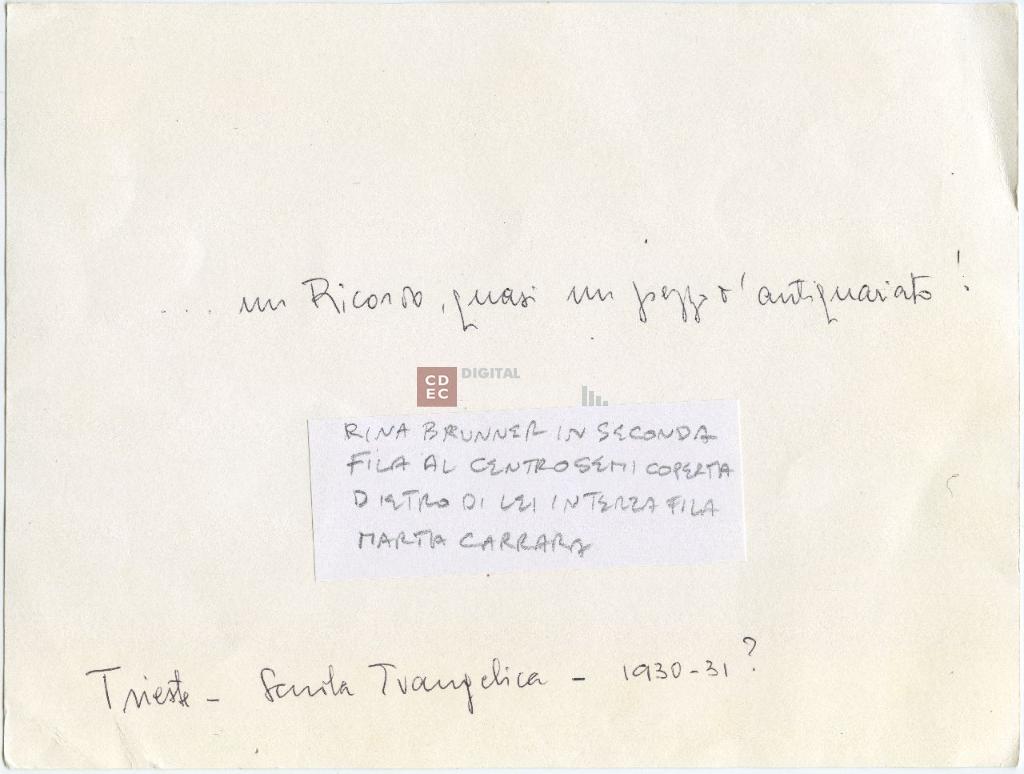 .... un Ricordo, quasi un pezzo d'antiquariato!
CD
EC
DIGITAL
RINA BRUNNER IN SECONDA
FILA AL CENTRO SEMI COPERTA
DIETRO DI LEI IN TERZA FILA
MARTA CARRARA
Trieste - Scuola Evangelica - 1930-31?